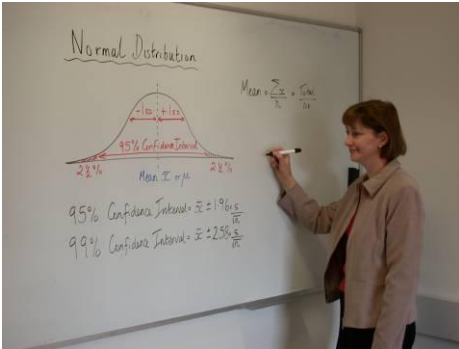 Normal Distribution
Mean = Σx/n = Total/no
-1SD +1SD
95% Confidence Interval
2½% 2½%
Mean x̄ or μ
95% Confidence Interval = x̄ ± 1.96 × s/√n
99% Confidence Interval = x̄ ± 2.58 × s/√n